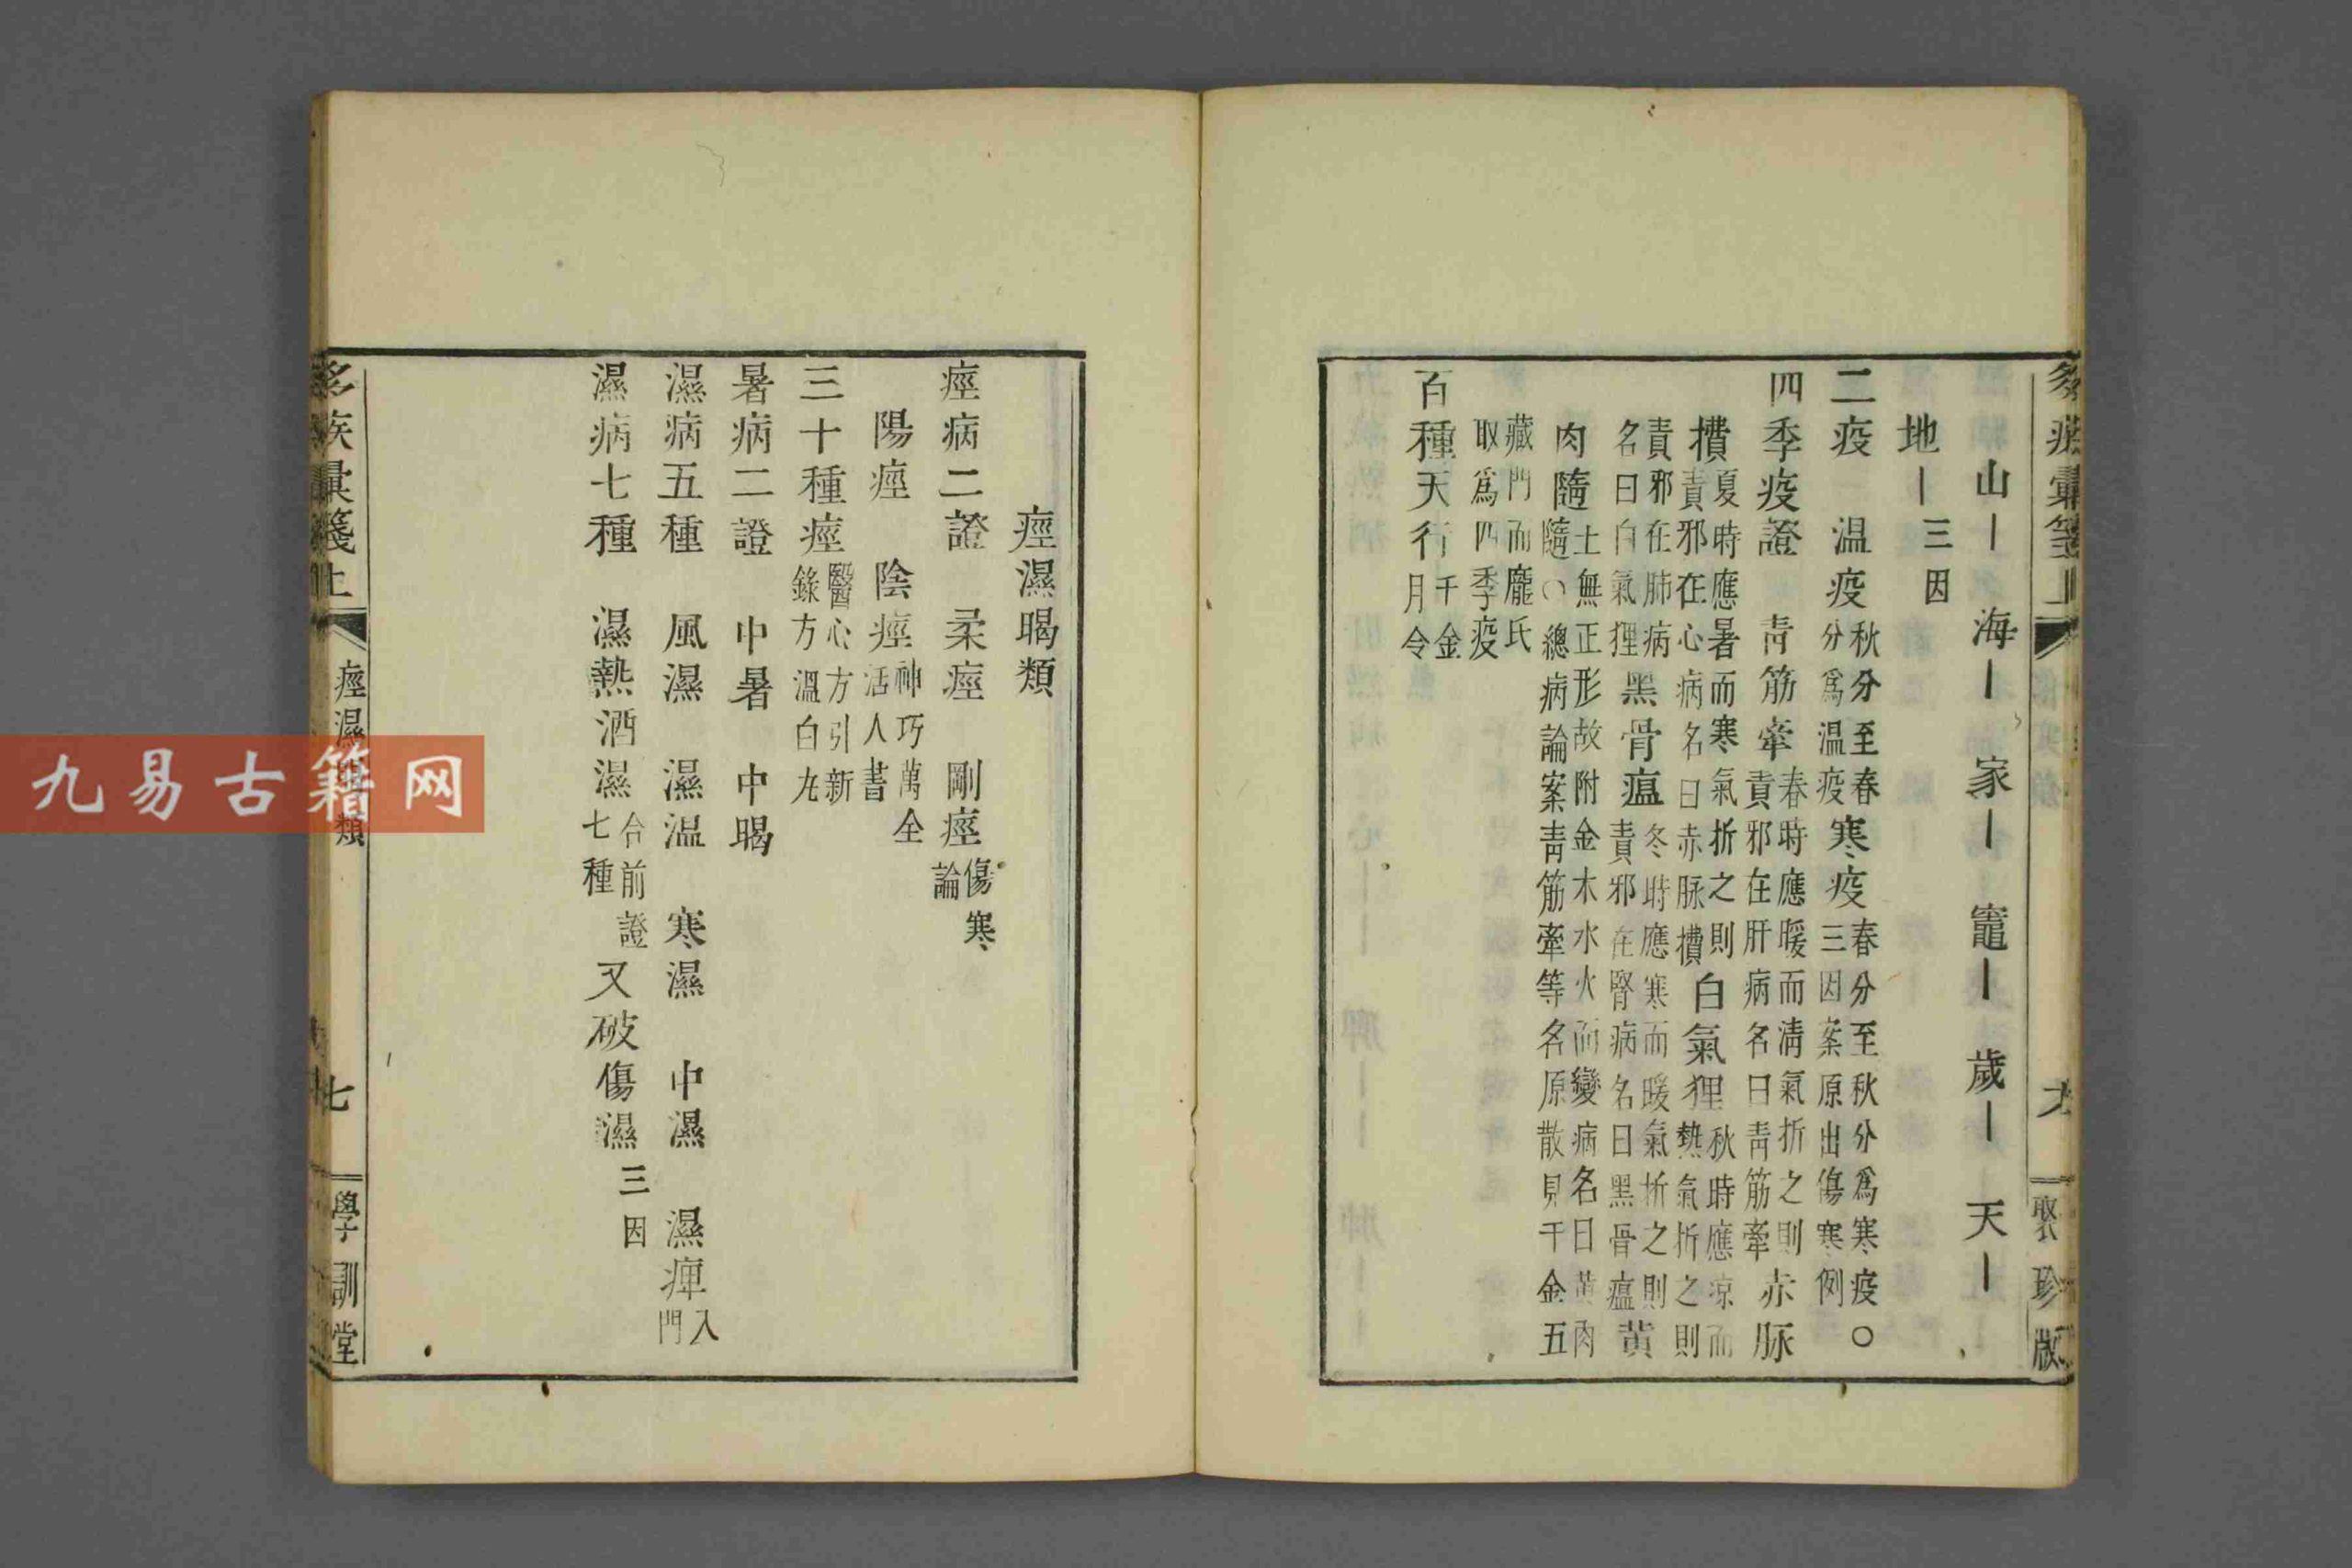 山｜　海｜　家｜　竈｜　歲｜　天｜
地｜三因
二疫　温疫秋分至春分為温疫寒疫春分至秋分為寒疫○三因案原出傷寒例
四季疫證　青筋牽春時應暖而清氣折之則責邪在肝病名曰青筋牽赤脉
攢夏時應暑而寒氣折之則責邪在心病名曰赤脉攢白氣狸秋時應凉而熱氣折之則
責邪在肺病名曰白氣狸黑骨瘟冬時應寒而暖氣折之則責邪在腎病名曰黑骨瘟黄
肉隨土無正形故附金木水火而變病名曰黄肉隨○總病論案青筋牽等名原散見千金五
藏門而龐氏取為四季疫
百種天行千金月令
聚珍版
痙濕暍類
痙病二證　柔痙　剛痙傷寒論
陽痙　陰痙神巧萬全活人書
三十種痙醫心方引新錄方溫白丸
暑病二證　中暑　中暍
濕病五種　風濕　濕温　寒濕　中濕　濕痺入門
濕病七種　濕熱酒濕合前證七種又破傷濕三因
痙濕暍類
七
學訓堂
九易古籍网